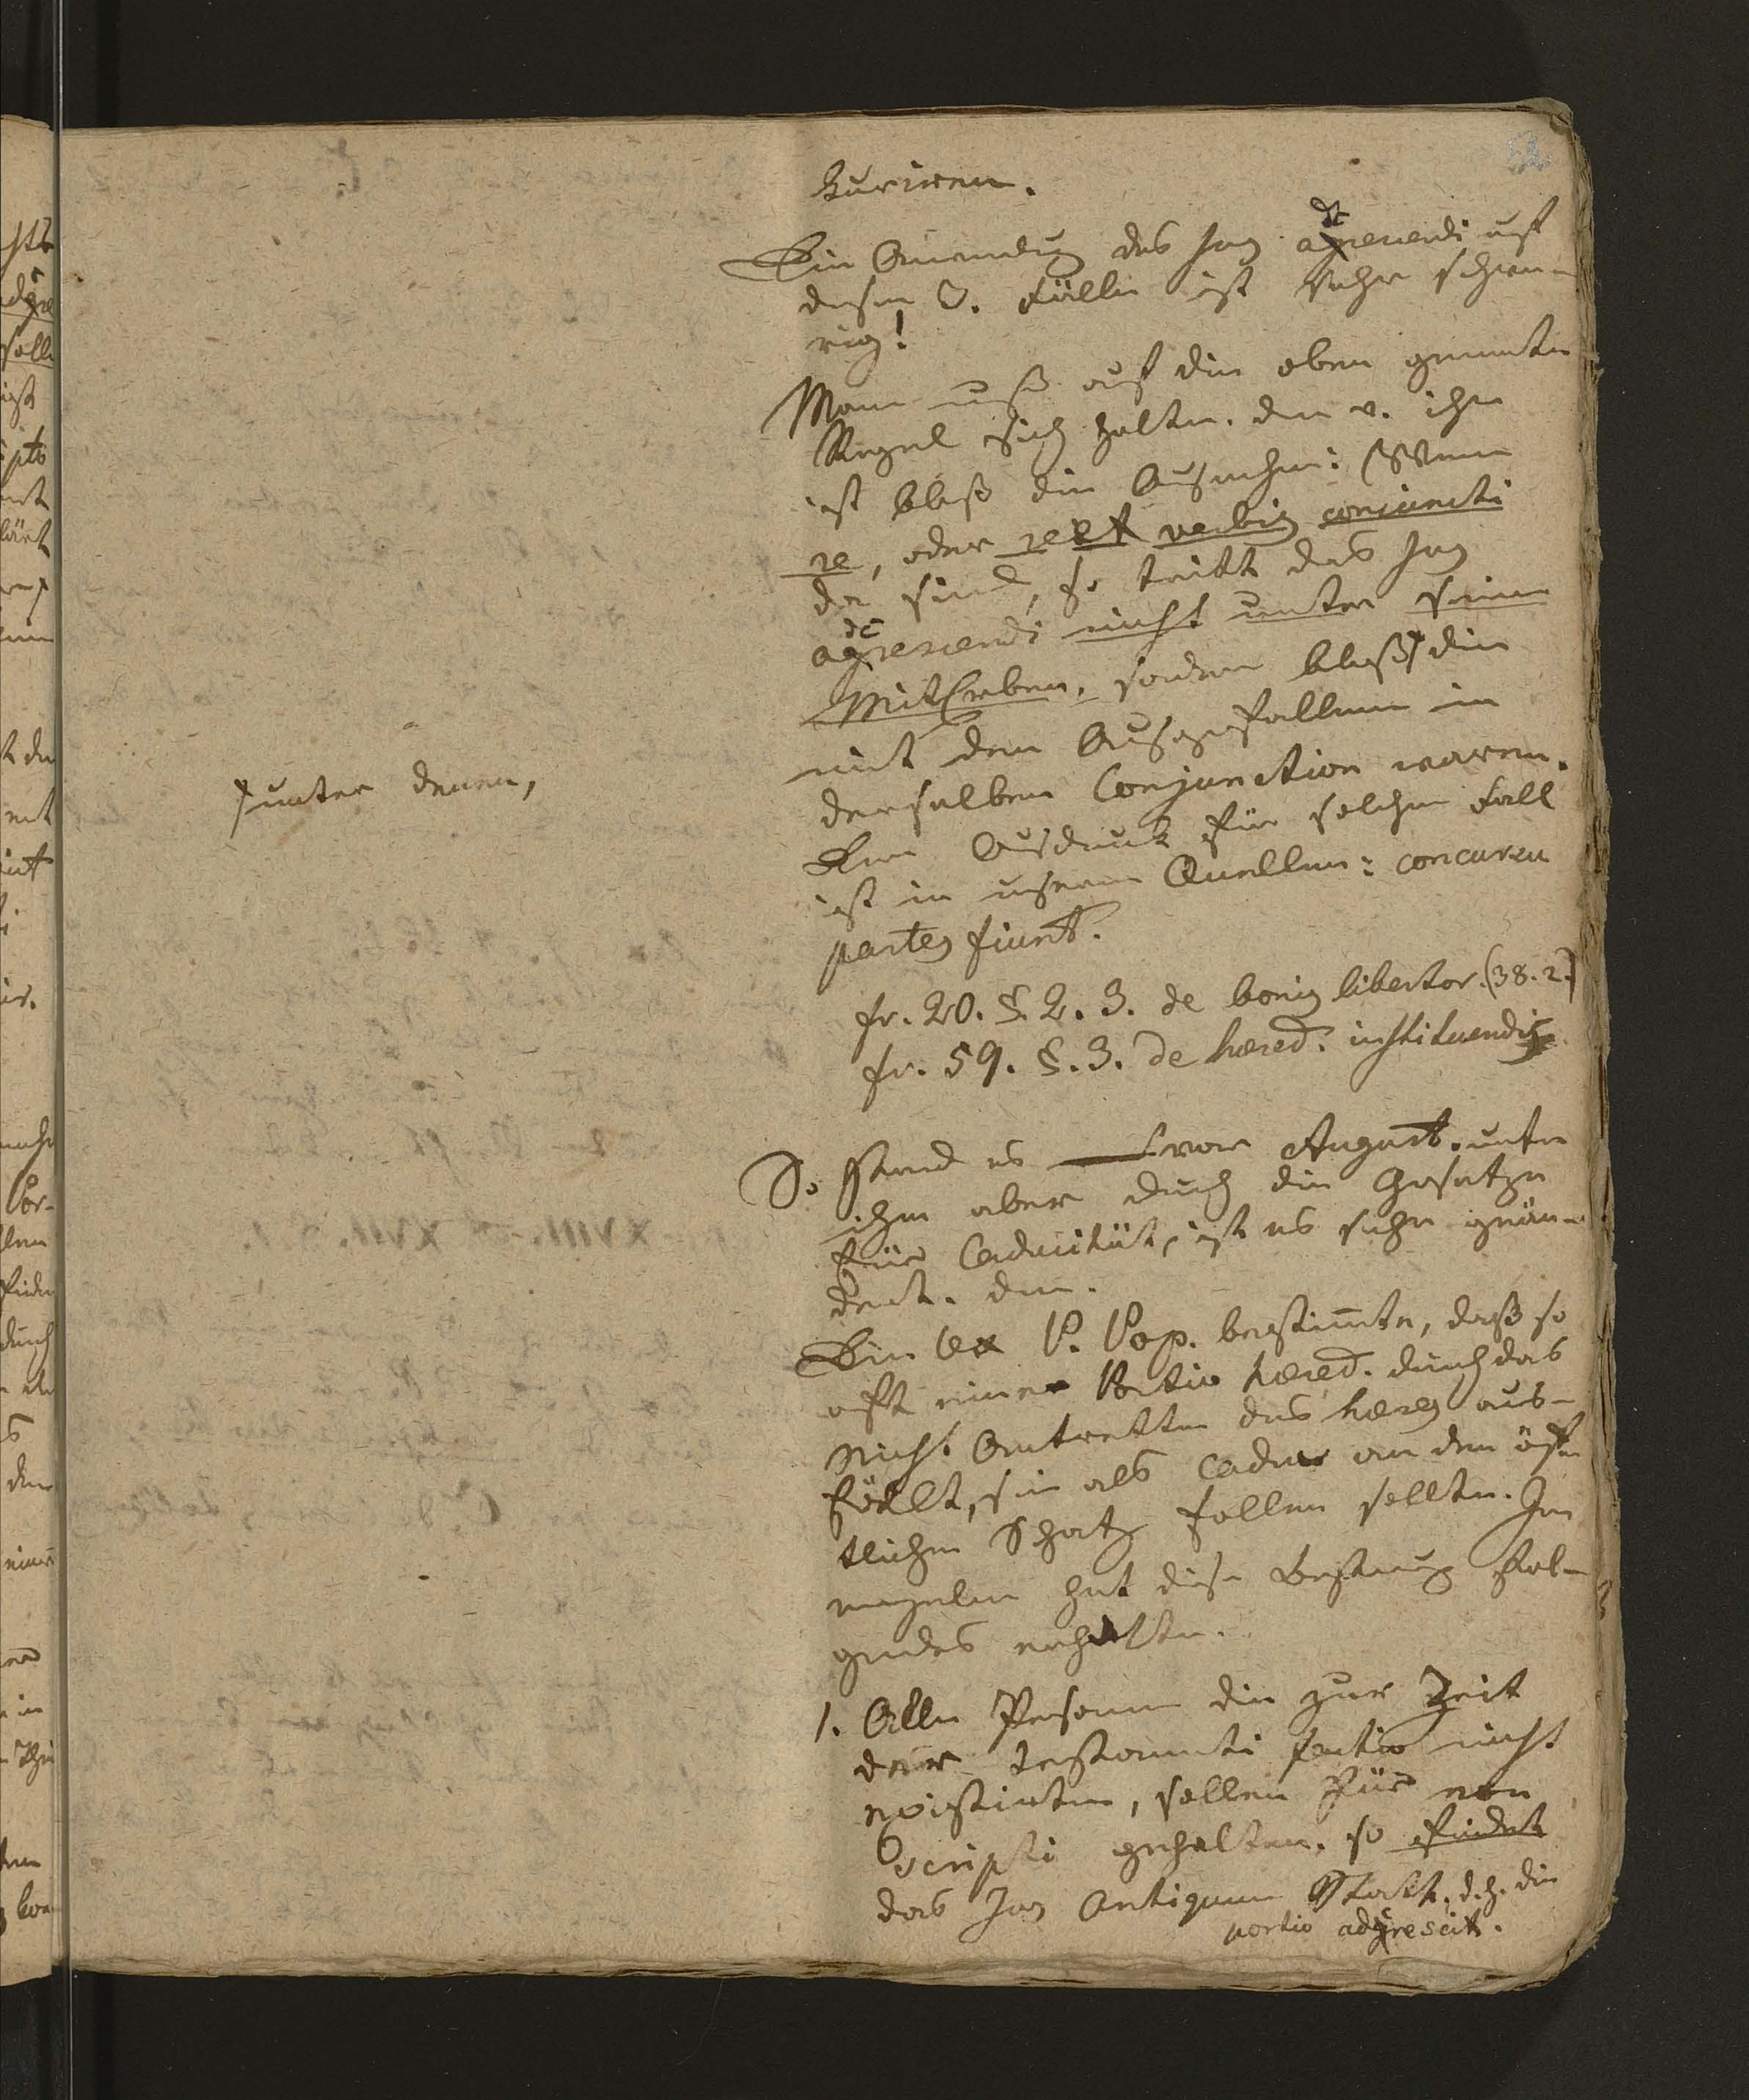 52
kuriren.
Die Anwendung des Jus adcrescendi auf
diesen 3. Fälle ist sehr schwie-
rig!
Man muß auf die oben genante
Regel sich halten. den v. ihr
ist bloß die Ausnahm: Wenn
re, oder re et verbis conjuncti
da sind, so tritt das Jus
adcrescendi nicht unter seine
MitErben, sondern bloß die
mit dem Ausgefallenen in
derselben Conjunction waren.
Der Ausdruck für solchen Fall
ist in unsern Quellen: concursu
partes fiunt.
fr. 20. §. 2. 3. de bonis libertor. (38. 2.)
fr. 59. §. 3. de hæred. instituendis
unter denen,
So stand es vor August. unter
ihm aber durch die Gesetze
für Caducität, ist es sehr geän-
dert. den.
Die lex P. Pop. bestimte, daß so
oft eine Portio hæred. durch das
Nicht Antretten des hæres aus-
fällt, sie als Caduc an den öffn
tlichen Schatz fallen sollte. Im
gendes erhalten.
1. Alle Personen die zur Zeit
der testamenti factio nicht
existirten, sollen für non
scripti gehalten. so findet
das Jus Antiquum Statt. d. h. die
portio adcrescit.